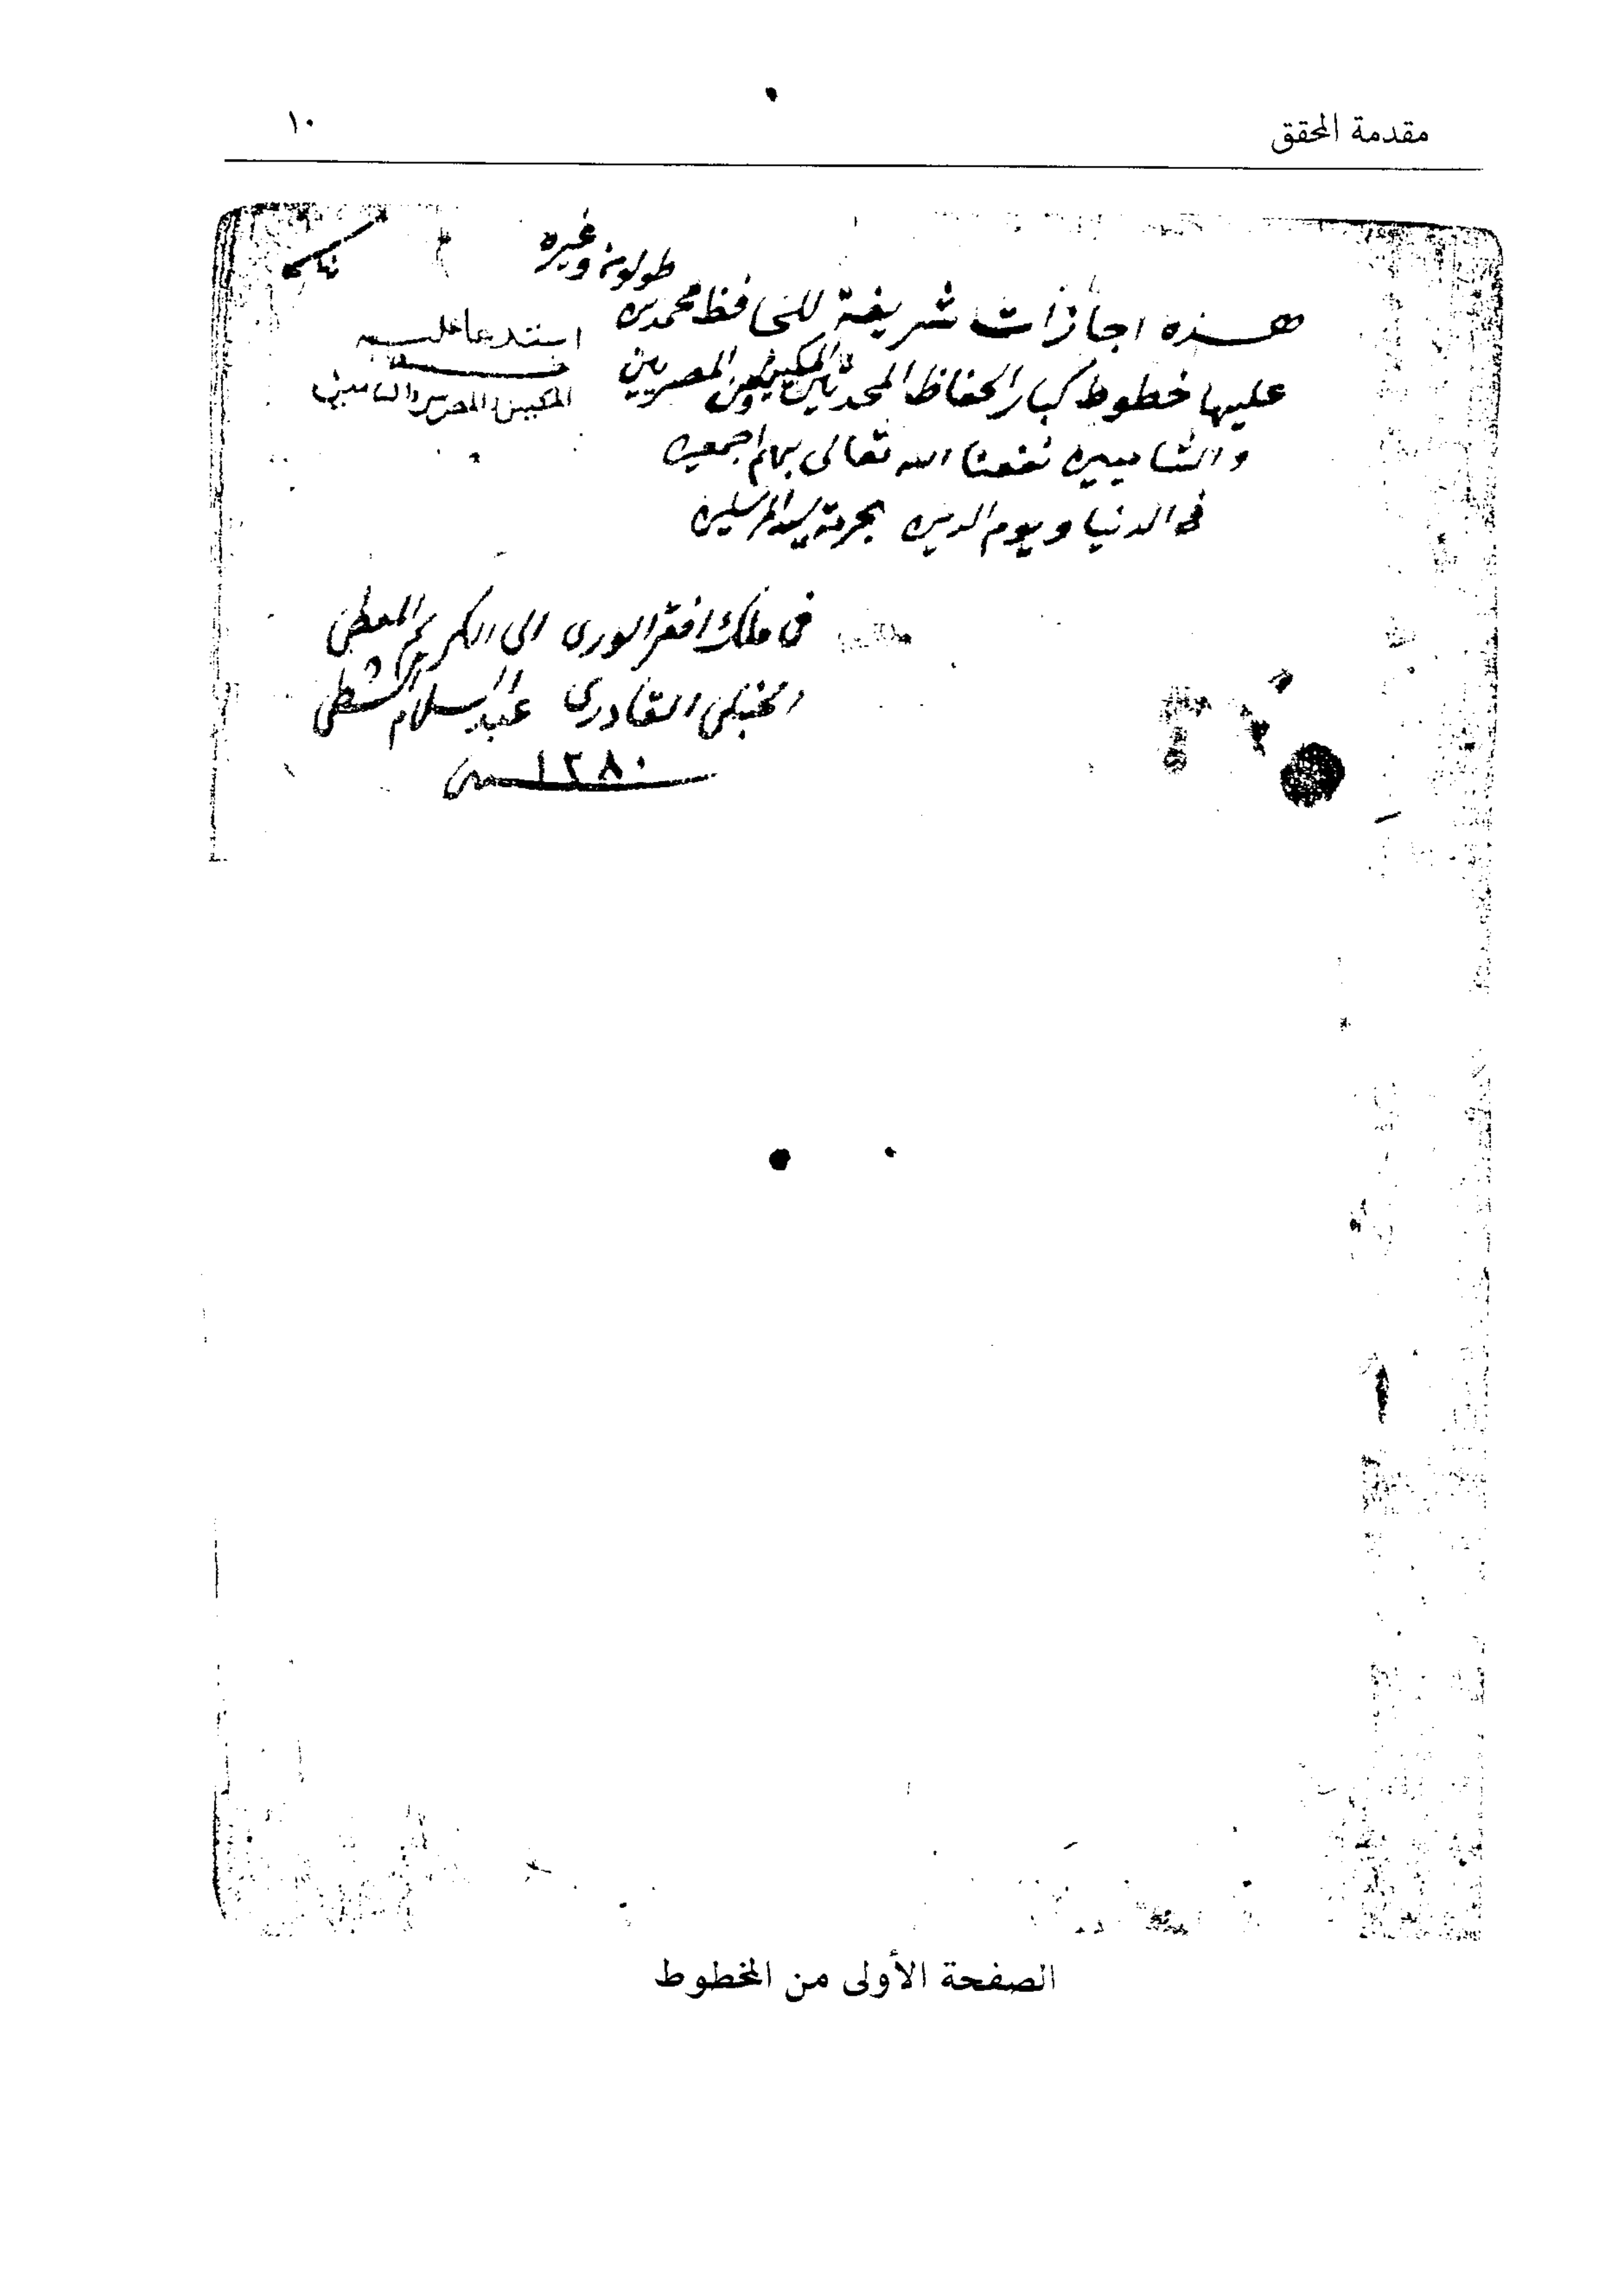 مقدمة المحقق ١٠
هذه اجازات شريفة للحافظ محمد بن طولون وغيره
عليها خطوط كبار الحفاظ المحدثين المكيين والمصريين
والشاميين نفعنا الله تعالى بهم اجمعين
في الدنيا ويوم الدين بحرمة سيد المرسلين
استدعا عليه
خط
المكيين المصريين والشاميين
في ملك افقر الورى الى الكريم المعطي
الحنبلي القادري عبد السلام الشطي
١٢٨٠
الصفحة الأولى من المخطوط